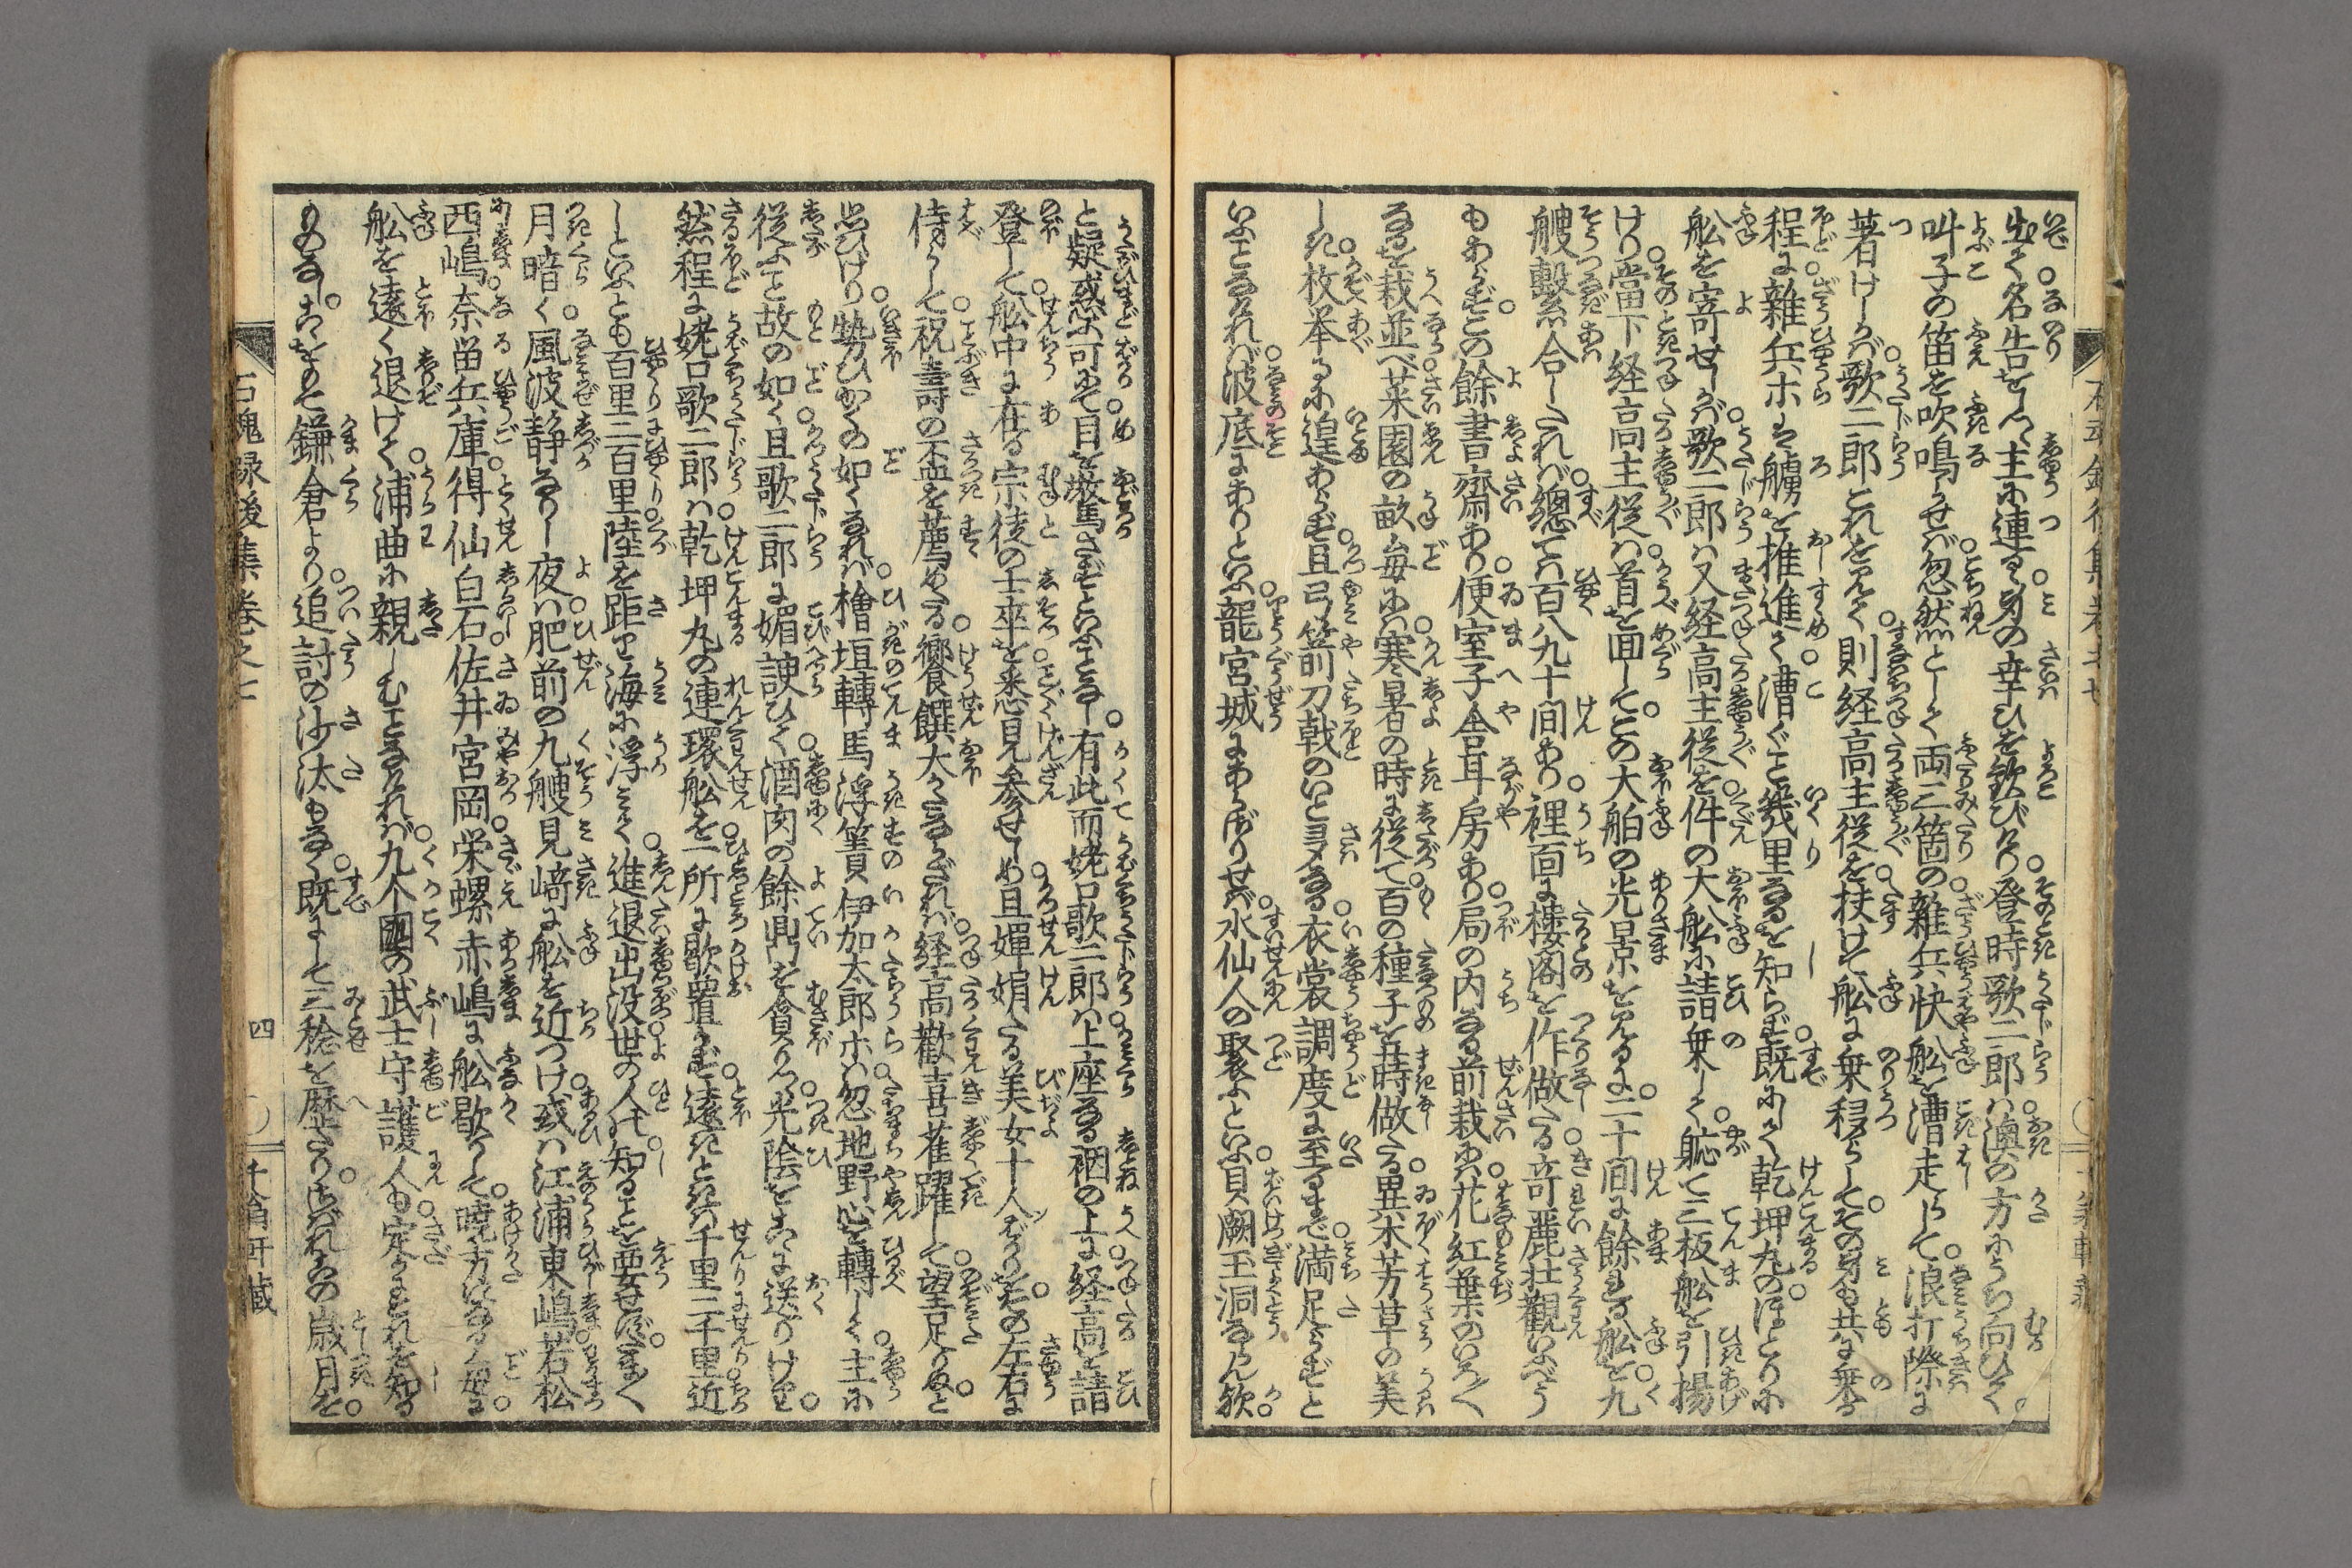 出て名告をしつ主に連るゝ身の幸ひを歓びけり登時歌二郎は澳の方にうち向ひて
叫子の笛を吹鳴らせば忽然として両三箇の雑兵快舩を漕走らして浪打際に
著けしかば歌二郎これを見て則経高主従を扶けて舩に乗移らしてその身も共に乗る
程に雑兵ホは艣を推進て漕ぐこと幾里なるを知らず既にして乾坤丸のほとりに
舩を寄せしかば歌二郎は又経高主従を件の大舩に請乗して艈て三板舩を引揚
けり當下経高主従は首を回してこの大舶の光景を見るに二十間に餘れる舩を九
艘繫合したれば總ては百八九十間あり裡面に樓閣を作做たる竒麗壮觀いふべうも
もあらずこの餘書齋あり便室子舎耳房あり局の内なる前栽には花紅葉のいろ〳〵
なるを栽並べ菜園の畝毎には寒暑の時に従て百の種子を蒔做たる異木芳草の美
しき枚挙るに遑あらず且弓箭刀戟のいと多なる衣裳調度に至るまで満足らずと
いふことなければ波底にありといふ龍宮城にあらざりせば水仙人の聚ふといふ貝闕玉洞ならん歟
と疑惑ふ可に目を驚さずといふことなし有此而姥口歌二郎は上座なる裀の上に経高を請
登して舩中に在る宗徒の士卒を悉見参せしめ且嬋娟たる美女十人ばかりをその左右に
侍らして祝壽の盃を薦めたる饗饌大かたならざれば経高歡喜雀躍して望足りぬと
思ひけり勢ひかくの如くなれば檜垣轉馬浮簀貝伊加太郎ホは忽地野心を轉して主に
従ふこと故の如く且歌二郎に媚諛ひて酒肉の餘瀝を貪りつ光陰をこゝに送りけり
然程に姥口歌二郎は乾坤丸の連環舩を一所に歇置かず遠きときは千里二千里近
しといふとも百里二百里陸を距り海に浮みて進退出没世の人に知ることを要せず恁まく
月暗く風波静なりし夜は肥前の九艘見﨑に舩を近つけ或は江浦東嶋若松
西嶋奈留兵庫得仙白石佐井宮岡栄螺赤嶋に舩歇りして暁方になる毎に
舩を遠く退けて浦曲に親しむことなければ九个國の武士守護人も定かにこれを知る
ものなしこゝをもて鎌倉より追討の沙汰もなく既にして三稔を歴たりければこの歳月を
石魂録後集巻之七
四
千翁軒藏